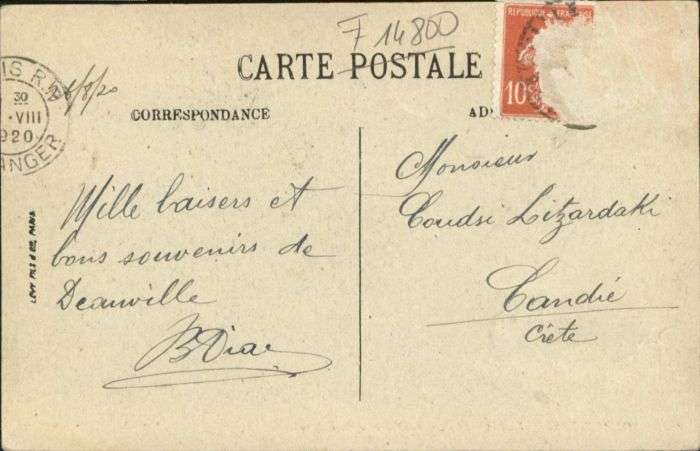 F 14800
CARTE POSTALE
/8/20
CORRESPONDANCE
AD
REPUBLIQUE FRANÇAISE
10c
IS R.
30
VIII
920
ANGER
Monsieur
Coudsi Litzardaki
Candié
Crète
Mille baisers et
bons souvenirs de
Deauville
LEVY FILS & CIE, PARIS